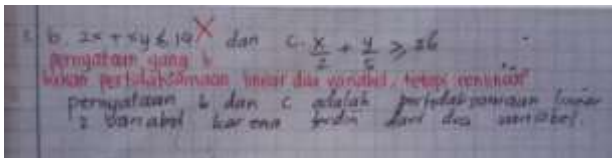 b. 2x + xy ≤ 10 X dan c. x/2 + y/5 ≥ 36
pernyataan yang b
bukan pertidaksamaan linear dua variabel, tetapi
pernyataan b dan c adalah pertidaksamaan linear
2 variabel karena terdiri dari dua variabel.